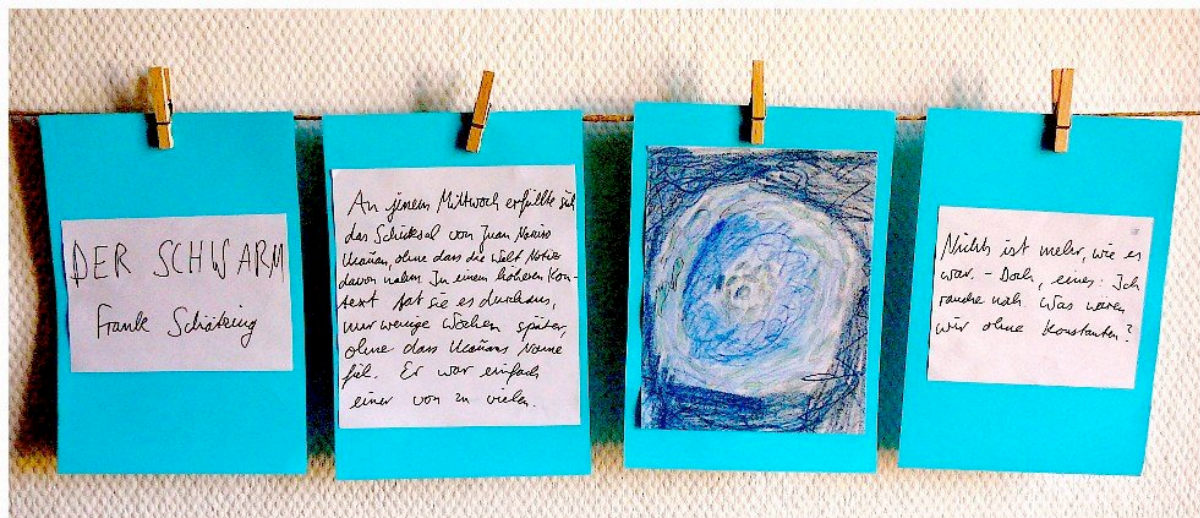 DER SCHWARM
Frank Schätzing
An jenem Mittwoch erfüllte sich
das Schicksal von Juan Narciso
Ucañan, ohne dass die Welt Notiz
davon nahm. In einem höheren Kon-
text tat sie es durchaus,
nur wenige Wochen später,
ohne dass Ucañans Name
fiel. Er war einfach
einer von zu vielen.
Nichts ist mehr, wie es
war. – Doch, eines: Ich
rauche noch. Was wären
wir ohne Konstanten?